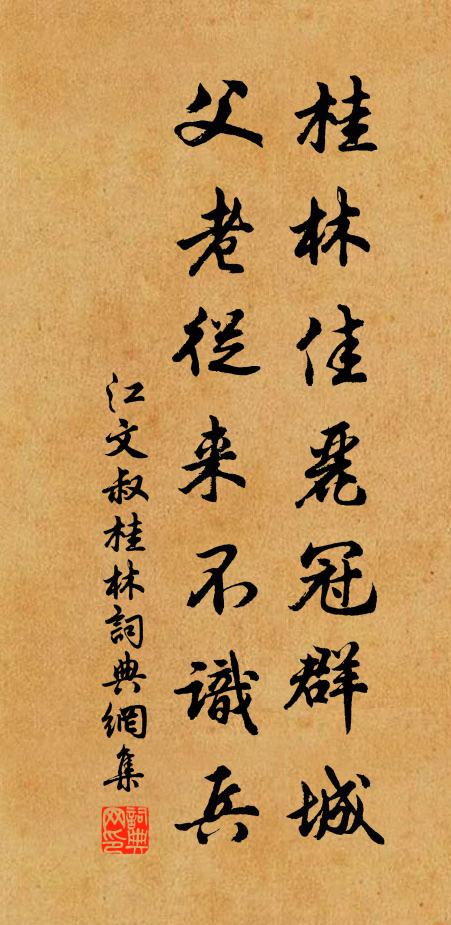 桂林佳麗冠群城
父老從来不識兵
江文叔桂林詞典網集
詞典网印